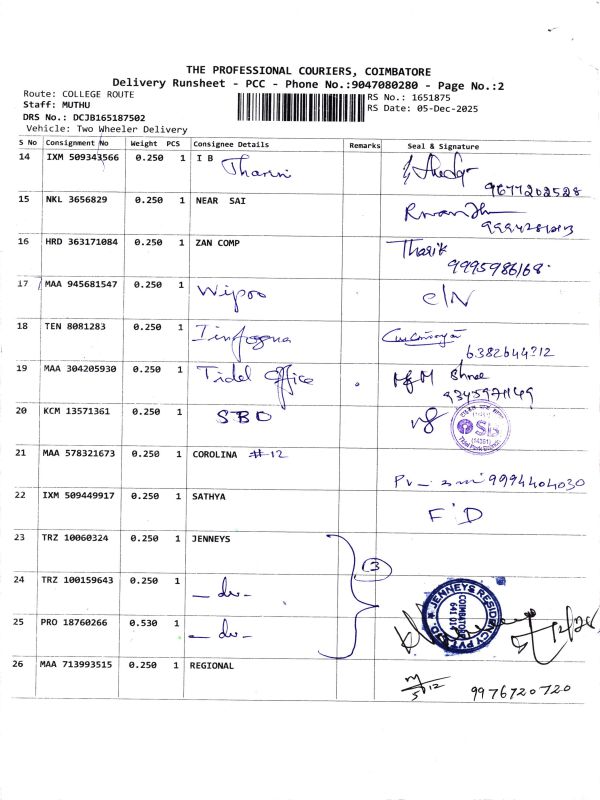 THE PROFESSIONAL COURIERS, COIMBATORE
Delivery Runsheet - PCC - Phone No.:9047080280 - Page No.:2
Route: COLLEGE ROUTE
Staff: MUTHU
DRS No.: DCJB165187502
Vehicle: Two Wheeler Delivery
RS No.: 1651875
RS Date: 05-Dec-2025
S No Consignment No Weight PCS Consignee Details Remarks Seal & Signature
14 IXM 509343566 0.250 1 I B
Tharini
9677202528
15 NKL 3656829 0.250 1 NEAR SAI
16 HRD 363171084 0.250 1 ZAN COMP Tharik
9995986168
17 MAA 945681547 0.250 1 Wipoo
18 TEN 8081283 0.250 1
6382644712
19 MAA 304205930 0.250 1 Tidel office
9345971149
20 KCM 13571361 0.250 1 SBO
21 MAA 578321673 0.250 1 COROLINA #12
9994404030
22 IXM 509449917 0.250 1 SATHYA
F D
23 TRZ 10060324 0.250 1 JENNEYS
3
24 TRZ 100159643 0.250 1 - do -
25 PRO 18760266 0.530 1 - do -
JENNEYS RESIDENCY PVT LTD.
COIMBATORE
641 014
26 MAA 713993515 0.250 1 REGIONAL
5/12
9976720720